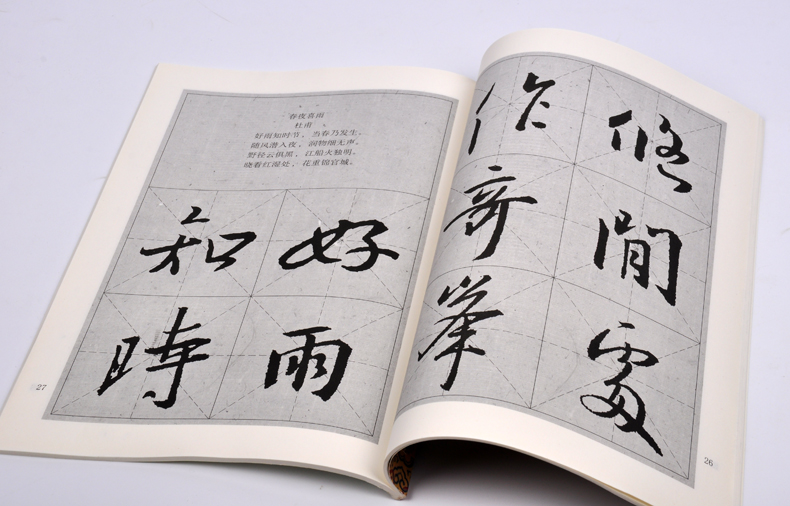 悠閒處
作奇峯
26
春夜喜雨
杜甫
好雨知时节，当春乃发生。
随风潜入夜，润物细无声。
野径云俱黑，江船火独明。
晓看红湿处，花重锦官城。
好雨
知時
27